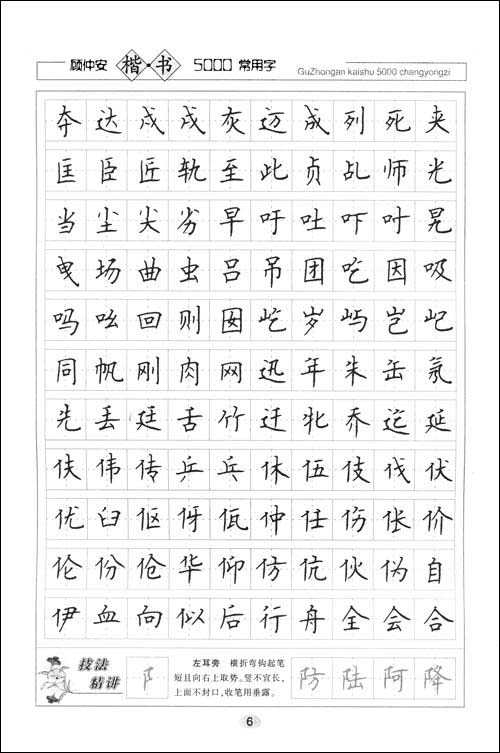 顾仲安 楷·书 5000 常用字
GuZhongan kaishu 5000 changyongzi
夺 达 戍 戌 灰 迈 成 列 死 夹
匡 臣 匠 轨 至 此 贞 乩 师 光
当 尘 尖 劣 早 吁 吐 吓 叶 晃
曳 场 曲 虫 吕 吊 团 吃 因 吸
吗 吆 回 则 囡 屹 岁 屿 岂 屺
同 帆 刚 肉 网 迅 年 朱 缶 氖
先 丢 廷 舌 竹 迁 牝 乔 迄 延
伕 伟 传 乒 乓 休 伍 伎 伐 伏
优 臼 伛 伢 佤 仲 任 伤 伥 价
伦 份 伧 华 仰 仿 伉 伙 伪 自
伊 血 向 似 后 行 舟 全 会 合
技法
精讲
阝
左耳旁 横折弯钩起笔
短且向右上取势。竖不宜长，
上面不封口，收笔用垂露。
防 陆 阿 降
6